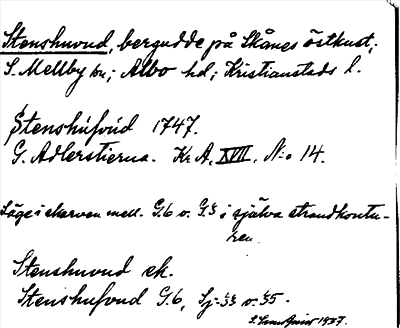 Stenshuvud, bergudde på Skånes östkust;
S. Mellby sn; Albo hd; Kristianstads l.
Stenshúfvúd 1747.
G. Adlerstierna. Kr. A. XVIII. N:o 14.
Läge i skarven mell. G.6 o. G.5 i själva strandkontu-
ren.
Stenshuvud ek.
Stenshufvud G.6, Sj. 33 o. 35.
1937.